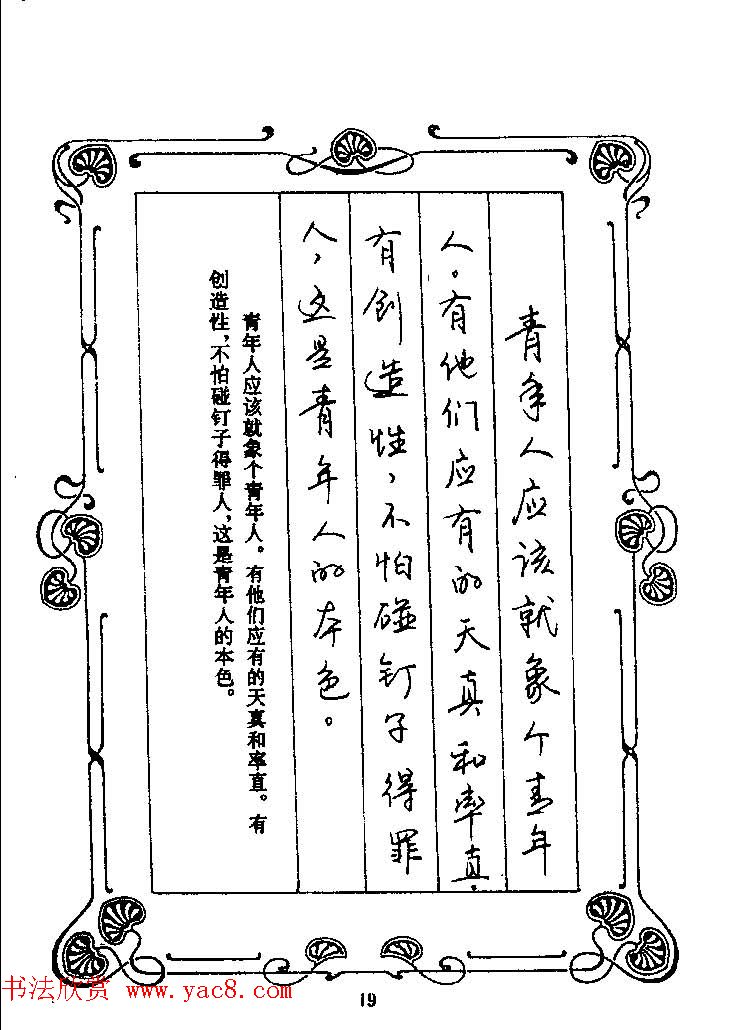 青年人应该就象个青年
人。有他们应有的天真和率直.
有创造性,不怕碰钉子得罪
人,这是青年人的本色。
青年人应该就象个青年人。有他们应有的天真和率直。有
创造性,不怕碰钉子得罪人,这是青年人的本色。
书法欣赏 www.yac8.com
19